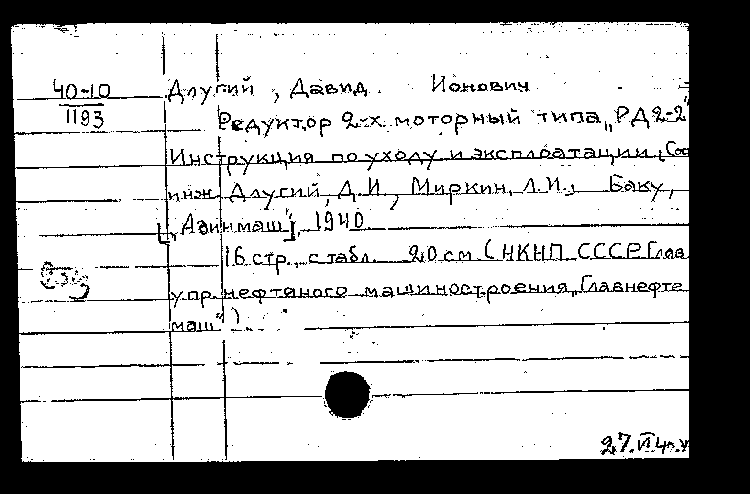 40-10
1193
Длугий, Давид Ионович
Редуктор 2-х моторный типа „РД2-2"
Инструкция по уходу и эксплоатации, Сос
инж. Длугий, Д.И., Миркин, Л.И., Баку,
[„Азинмаш"], 1940
16 стр., с табл. 20 см (НКНП СССР. Глав
упр. нефтяного машиностроения „Главнефте
маш")
27.VI